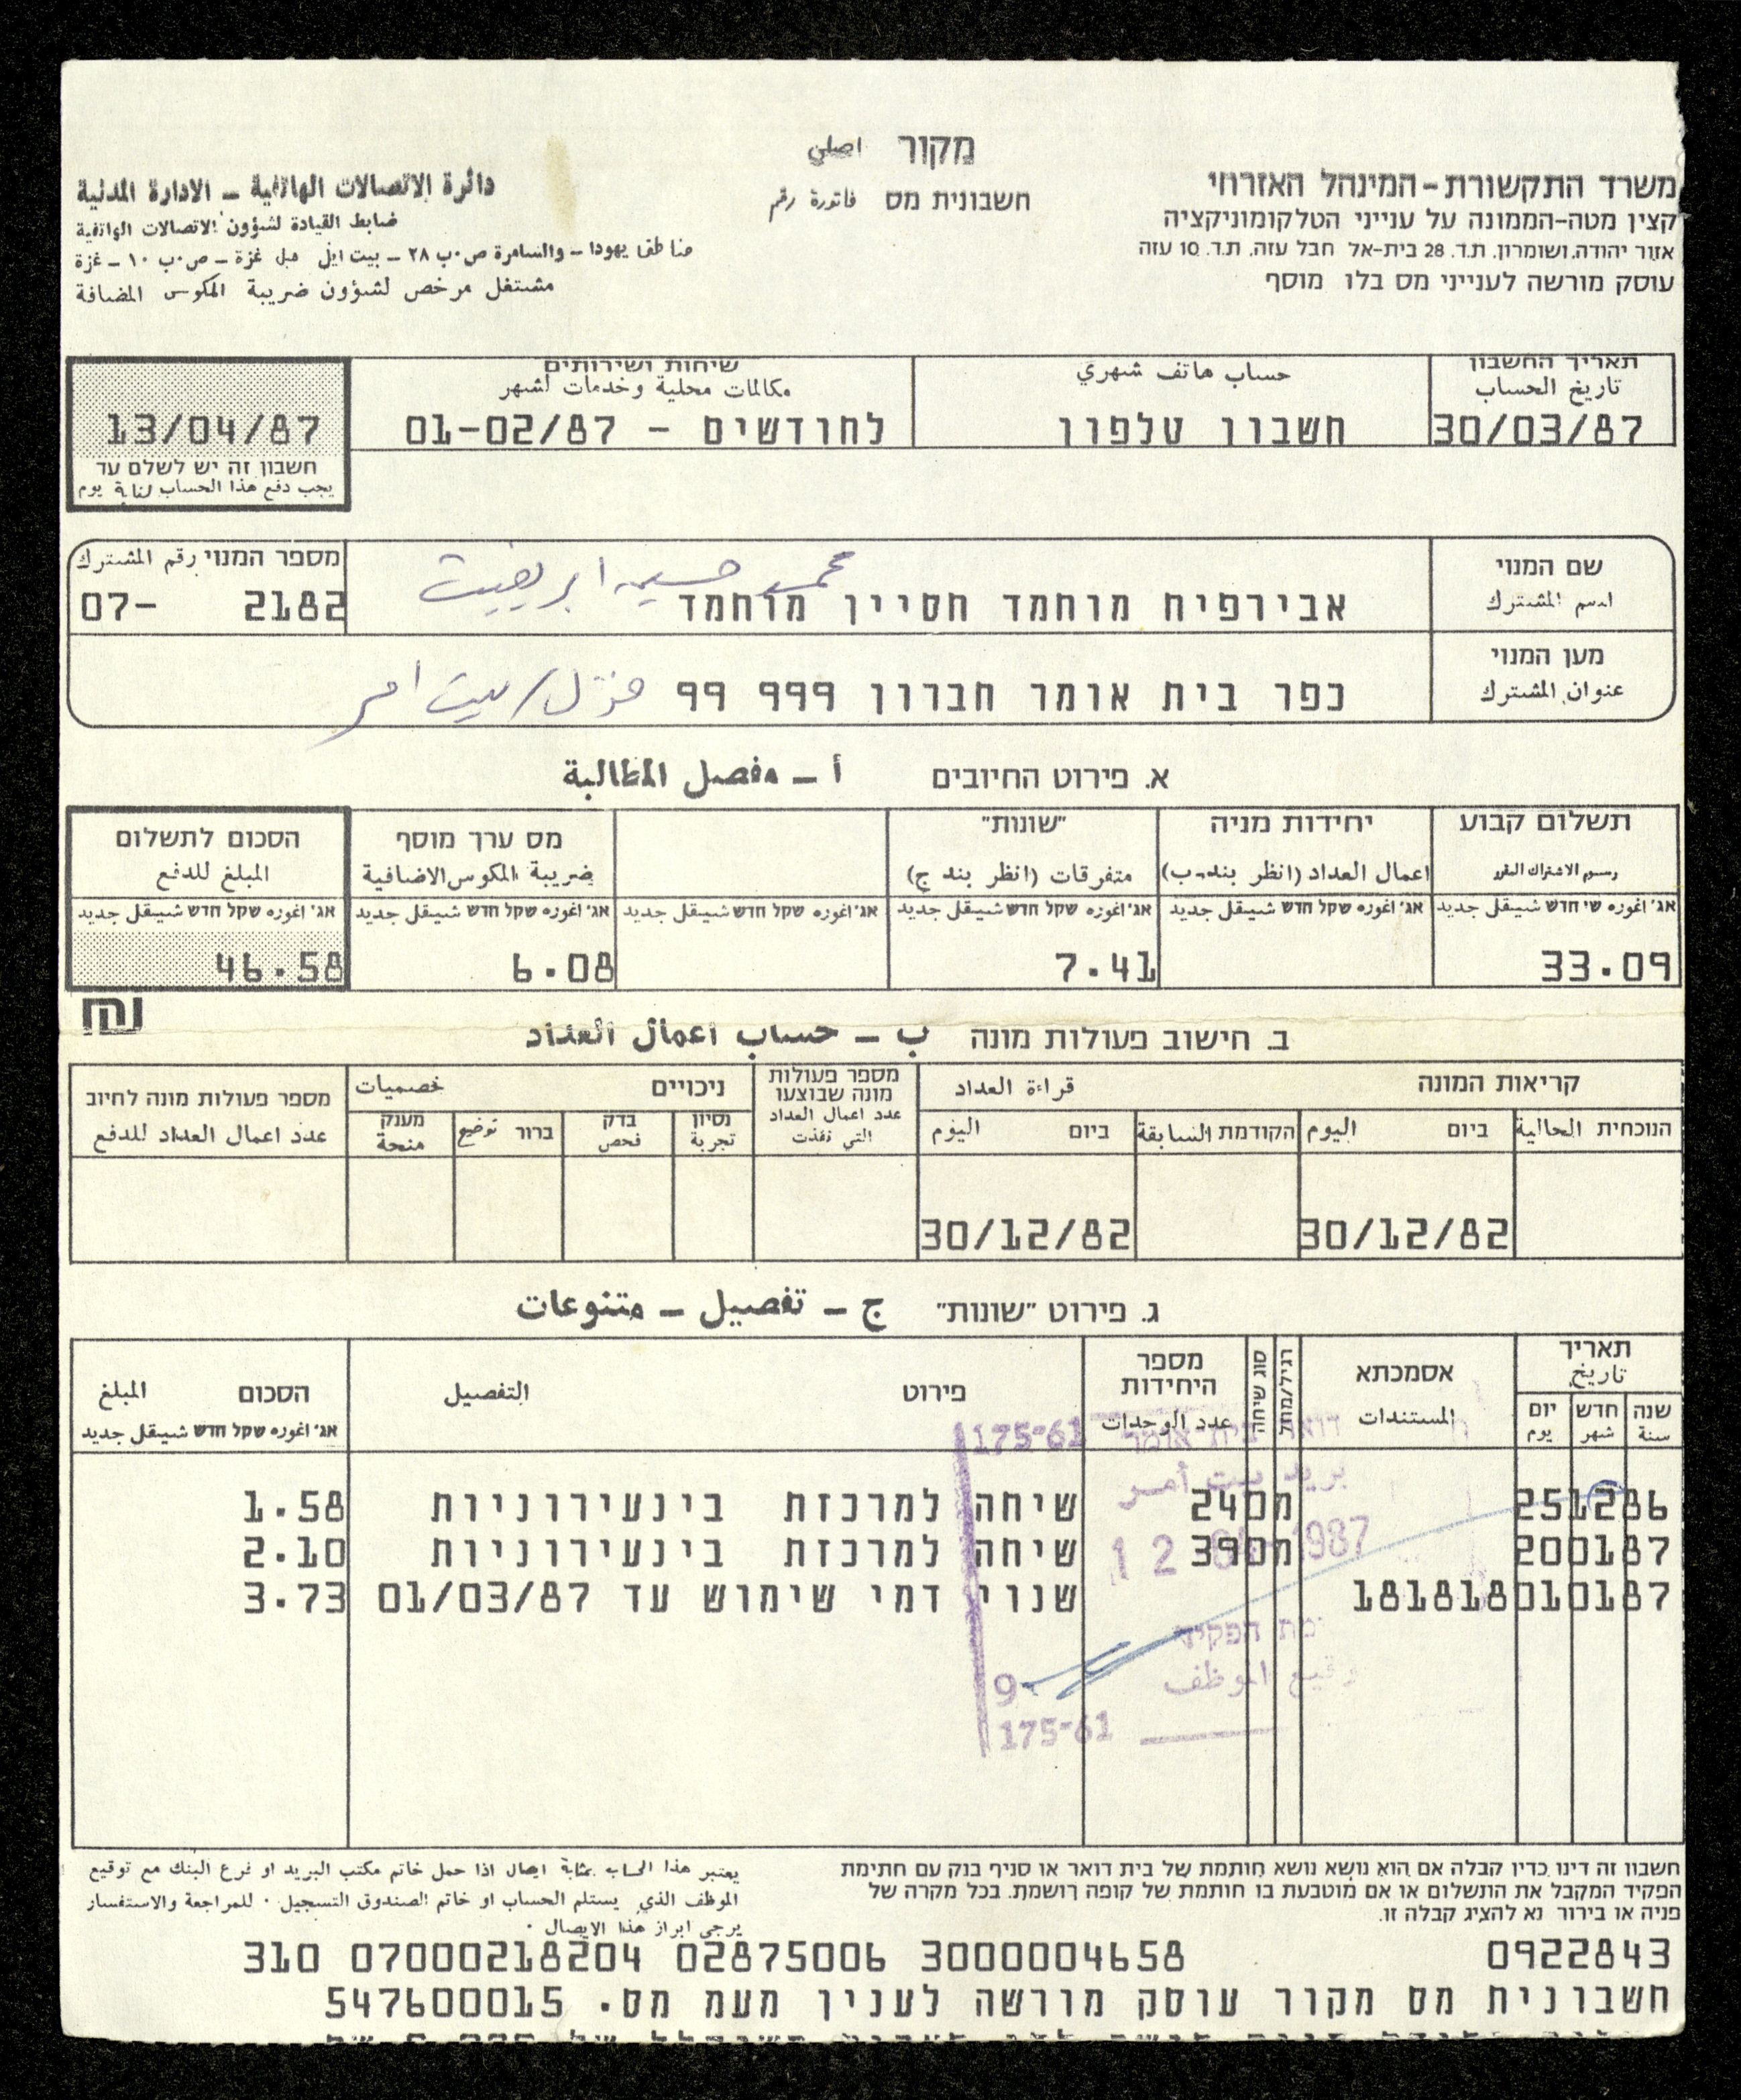 מקור اصلي
משרד התקשורת-המינהל האזרחי
קצין מטה-הממונה על ענייני הטלקומוניקציה
אזור יהודה, ושומרון, ת.ד. 28 בית-אל חבל עזה, ת.ד. 10 עזה
עוסק מורשה לענייני מס בלו מוסף
חשבונית מס فاتورة رقم
دائرة الاتصالات الهاتفية – الادارة المدنية
ضابط القيادة لشؤون الاتصالات الهاتفية
مناطقا يهودا – والسامرة ص٠ب ٢٨ – بيت ايل حبل غزة – ص٠ب ١٠ – غزة
مشتغل مرخص لشؤون ضريبة المكوس المضافة
תאריך החשבון
تاريخ الحساب
30/03/87
حساب هاتف شهري
חשבון טלפון
שיחות ושירותים
مكالمات محلية وخدمات لشهر
לחודשים - 01-02/87
13/04/87
חשבון זה יש לשלם עד
يجب دفع هذا الحساب لغاية يوم
שם המנוי
اسم المشترك
محمد حسين
אבירפיח מוחמד חסיין מוחמד
מספר המנוי رقم المشترك
07- 2182
מען המנוי
عنوان المشترك
כפר בית אומר חברון 999 99 منزل / بيت امر
א. פירוט החיובים أ – مفصل المطالبة
תשלום קבוע
رسوم الاشتراك المقرر
יחידות מניה
اعمال العداد (انظر بند-ب)
"שונות"
متفرقات (انظر بند ج)
מס ערך מוסף
ضريبة المكوس الاضافية
הסכום לתשלום
المبلغ للدفع
אג' اغوره שי חדש شيقل جديد
אג' اغوره שקל חדש شيقل جديد
אג' اغوره שקל חדש شيقل جديد
אג' اغوره שקל חדש شيقل جديد
אג' اغوره שקל חדש شيقل جديد
אג' اغوره שקל חדש شيقل جديد
33.09 7.41 6.08 46.58
₪
ב. חישוב פעולות מונה ب – حساب اعمال العداد
קריאות המונה قراءة العداد
הנוכחית الحالية
ביום اليوم
הקודמת السابقة
ביום اليوم
מספר פעולות
מונה שבוצעו
عدد اعمال العداد
التي نفذت
ניכויים خصميات
נסיון
تجربة
בדק
فحص
ברור توضيح
מענק
منحة
מספר פעולות מונה לחיוב
عدد اعمال العداد للدفع
30/12/82 30/12/82
ג. פירוט "שונות" ج – تفصيل – متنوعات
תאריך
تاريخ
שנה
سنة
חדש
شهر
יום
يوم
אסמכתא
المستندات
רגיל/מוזל
סוג שיחה
מספר
היחידות
عدد الوحدات
פירוט التفصيل
הסכום المبلغ
אג' اغوره שקל חדש شيقل جديد
251286 מ 240 שיחה למרכזת בינעירוניות 1.58
200187 מ 390 שיחה למרכזת בינעירוניות 2.10
010187 181818 שנוי דמי שימוש עד 01/03/87 3.73
175-61
דואר בית אומר
بريد بيت أمر
12 1987
הפקיד
الموظف
9
175-61
חשבון זה דינו כדין קבלה אם הוא נושא נושא חותמת של בית דואר או סניף בנק עם חתימת
הפקיד המקבל את התשלום או אם מוטבעת בו חותמת של קופה רושמת. בכל מקרה של
פניה או בירור נא להציג קבלה זו.
يعتبر هذا الحساب بمثابة ايصال اذا حمل خاتم مكتب البريد او فرع البنك مع توقيع
الموظف الذي يستلم الحساب او خاتم الصندوق التسجيل ٠ للمراجعة والاستفسار
يرجى ابراز هذا الايصال ٠
310 07000218204 02875006 3000004658 0922843
חשבונית מס מקור עוסק מורשה לענין מעמ מס. 547600015